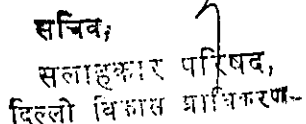 सचिव,
सलाहकार परिषद,
दिल्ली विकास प्राधिकरण-